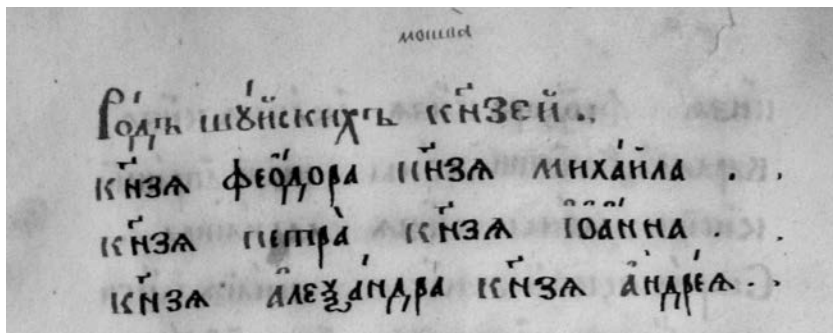 Родъ шꙋйскихъ кн҃зей..
кн҃зѧ феѻдора кн҃зѧ михаила . .
кн҃зѧ петра кн҃зѧ їѡанна . .
кн҃зѧ алеѯандра кн҃зѧ андреѧ . .